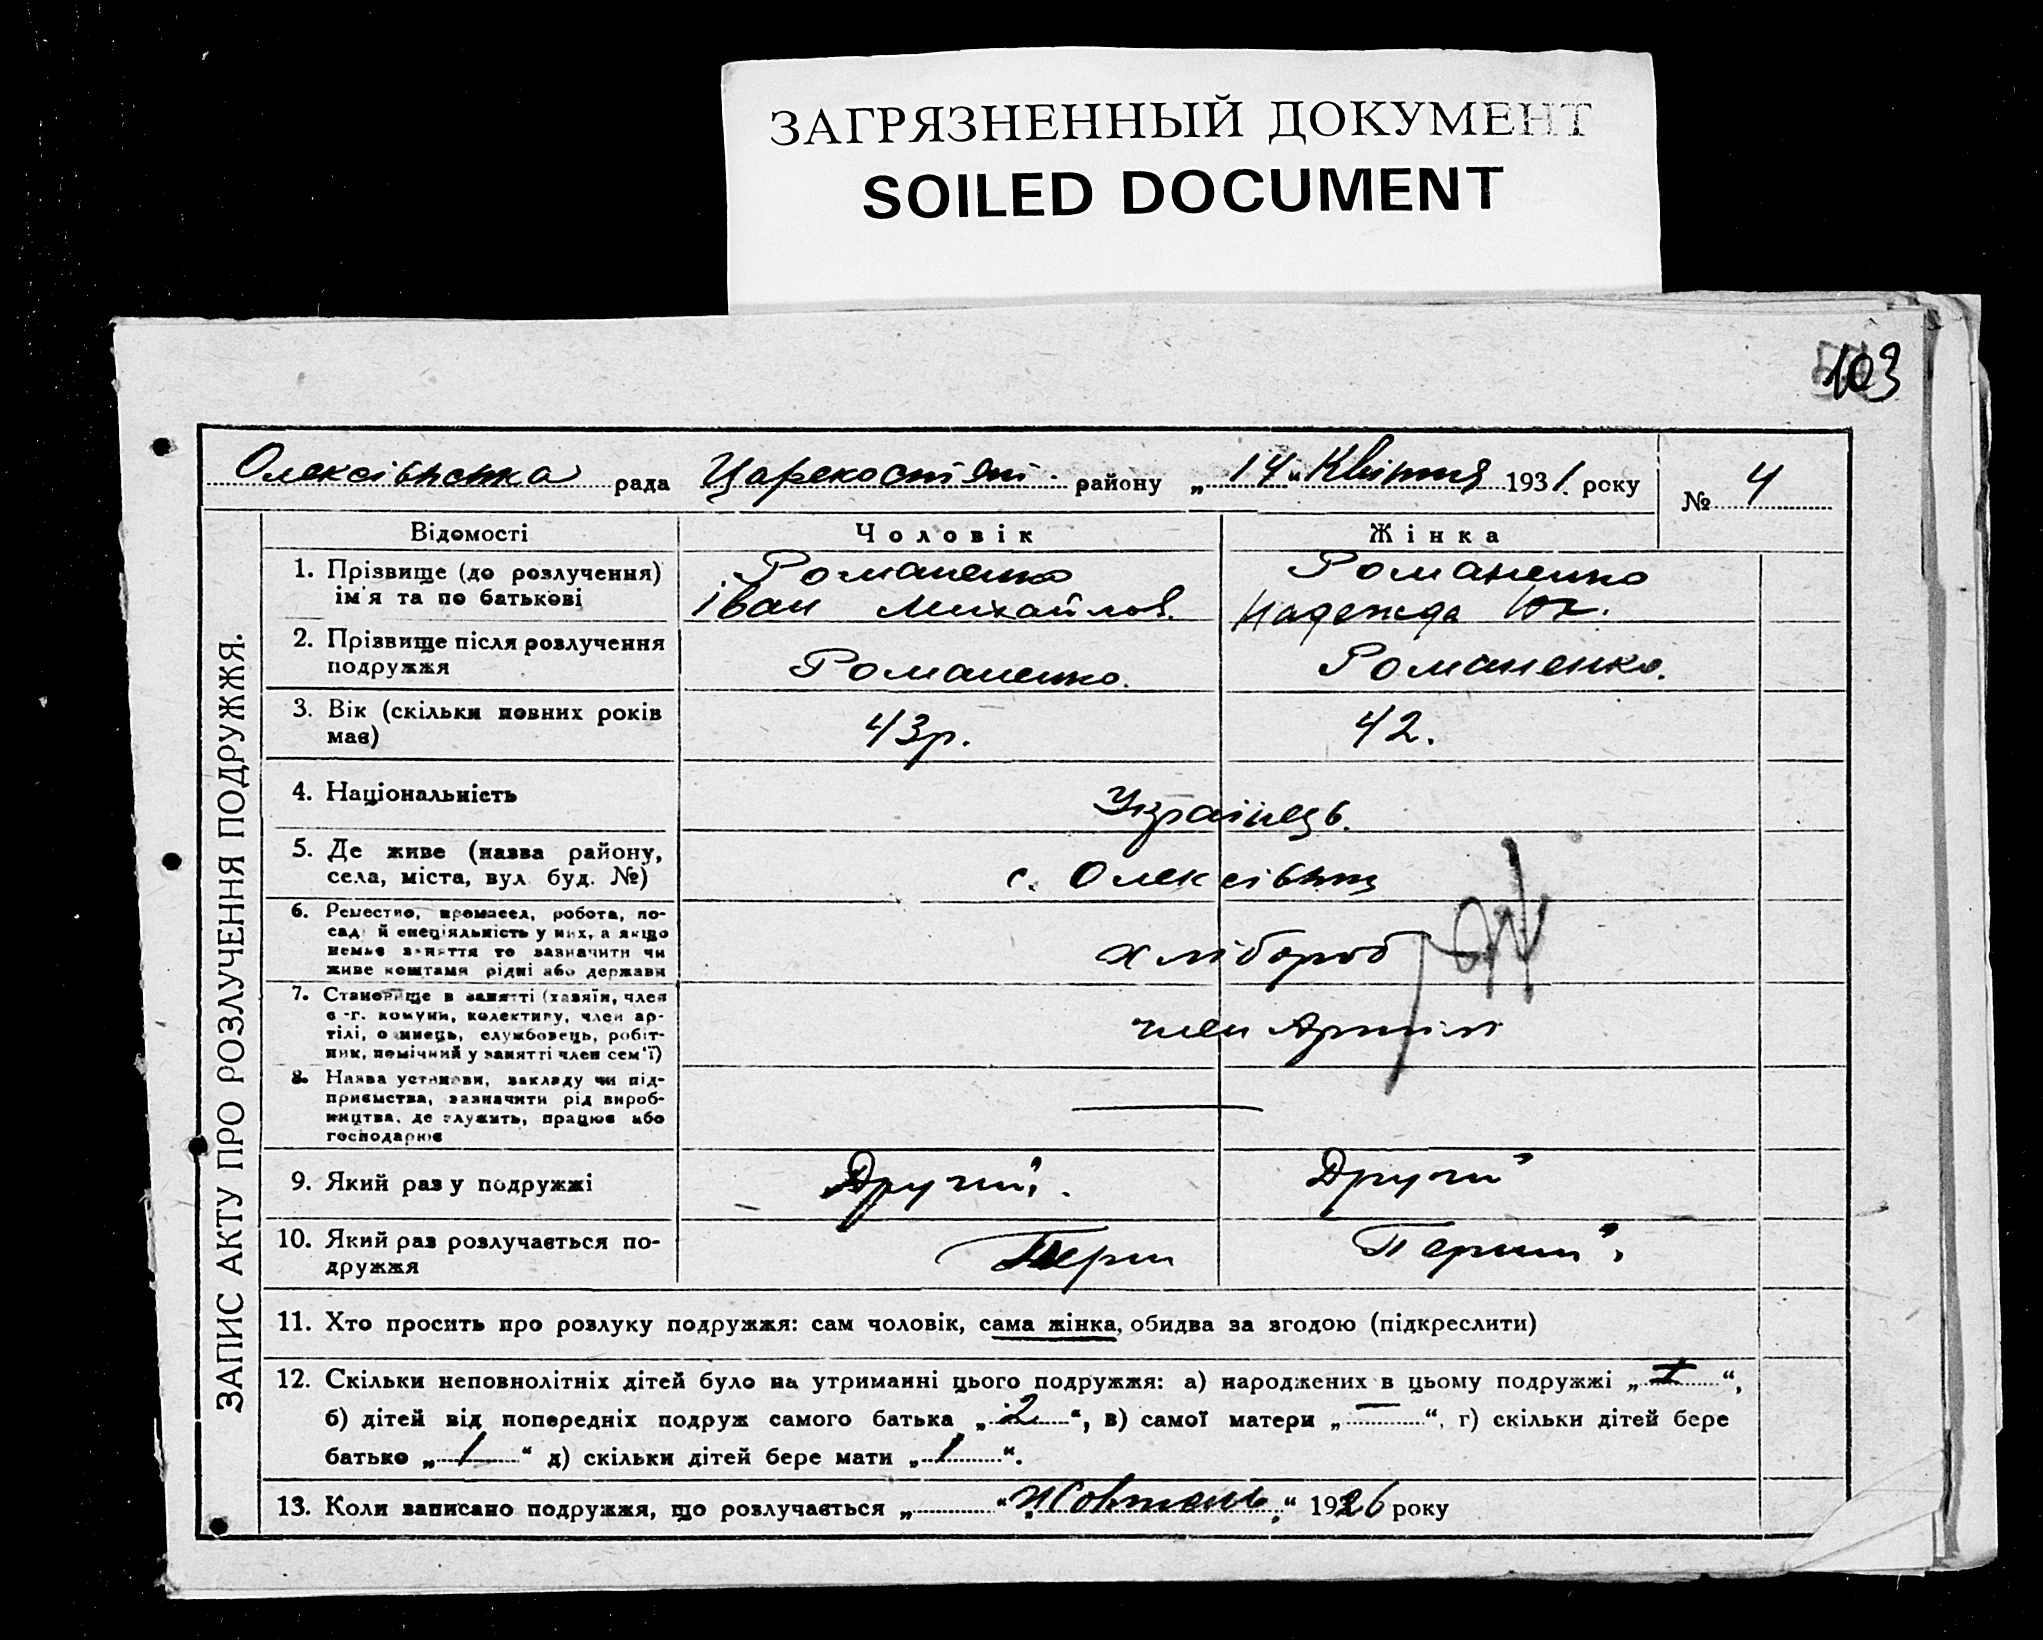 ЗАГРЯЗНЕННЫЙ ДОКУМЕНТ
SOILED DOCUMENT
103
Олексіївська рада Царекостянт. району „14“ Квітня 1931. року № 4
ЗАПИС АКТУ ПРО РОЗЛУЧЕННЯ ПОДРУЖЖЯ.
Відомості Чоловік Жінка
1. Прізвище (до розлучення) Романенко Романенко
ім'я та по батькові Іван Михайлов. Надежда
2. Прізвище після розлучення
подружжя Романенко. Романенко.
3. Вік (скільки повних років
має) 43р. 42.
4. Національність Українець.
5. Де живе (назва району,
села, міста, вул. буд. №) с. Олексівки
6. Ремество, промисел, робота, по-
сада й спеціяльність у них, а якщо
немає заняття то зазначити чи
живе коштами рідні або держави хлібороб
7. Становище в занятті (хазяїн, член
с.-г. комуни, колективу, член ар-
тілі, одинець, службовець, робіт-
ник, помічний у занятті член сем'ї) член Артілі
8. Назва установи, закладу чи під-
приємства, зазначити рід вироб-
ництва, де служить, працює або
господарює —
9. Який раз у подружжі Другий. Другий
10. Який раз розлучається по-
дружжя Перш Перший.
11. Хто просить про розлуку подружжя: сам чоловік, сама жінка, обидва за згодою (підкреслити)
12. Скільки неповнолітніх дітей було на утриманні цього подружжя: а) народжених в цьому подружжі „ “,
б) дітей від попередніх подруж самого батька „2“, в) самої матери „—“, г) скільки дітей бере
батько „1“ д) скільки дітей бере мати „1“.
13. Коли записано подружжя, що розлучається „ “ „Жовтень“ 1926 року